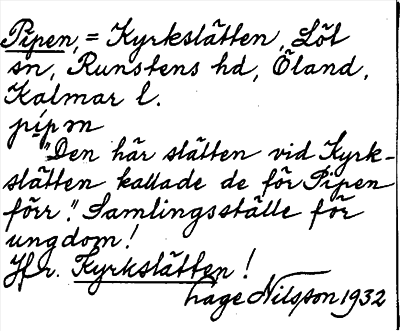 Pipen, = Kyrkslätten, Löt
sn, Runstens hd, Öland,
Kalmar l.
pípən
"Den här slätten vid Kyrk-
slätten kallade de för Pipen
förr." Samlingsställe för
ungdom!
Jfr. Kyrkslätten!
hage Nilsson 1932